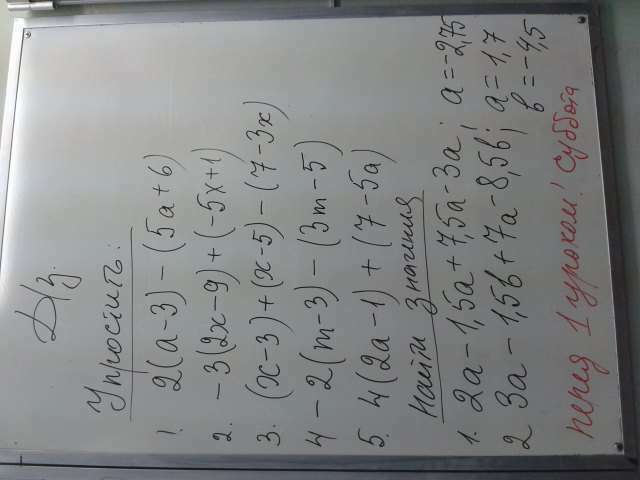 Д/з.
Упростить:
1. 2(a-3) - (5a+6)
2. -3(2x-9)+(-5x+1)
3. (x-3)+(x-5)-(7-3x)
4 -2(m-3)-(3m-5)
5. 4(2a-1)+(7-5a)
Найти значения
1. 2a-1,5a+7,5a-3a; a=-2,75
2 3a-1,5b+7a-8,5b; a=1,7
b=-4,5
перед 1 уроком! суббота